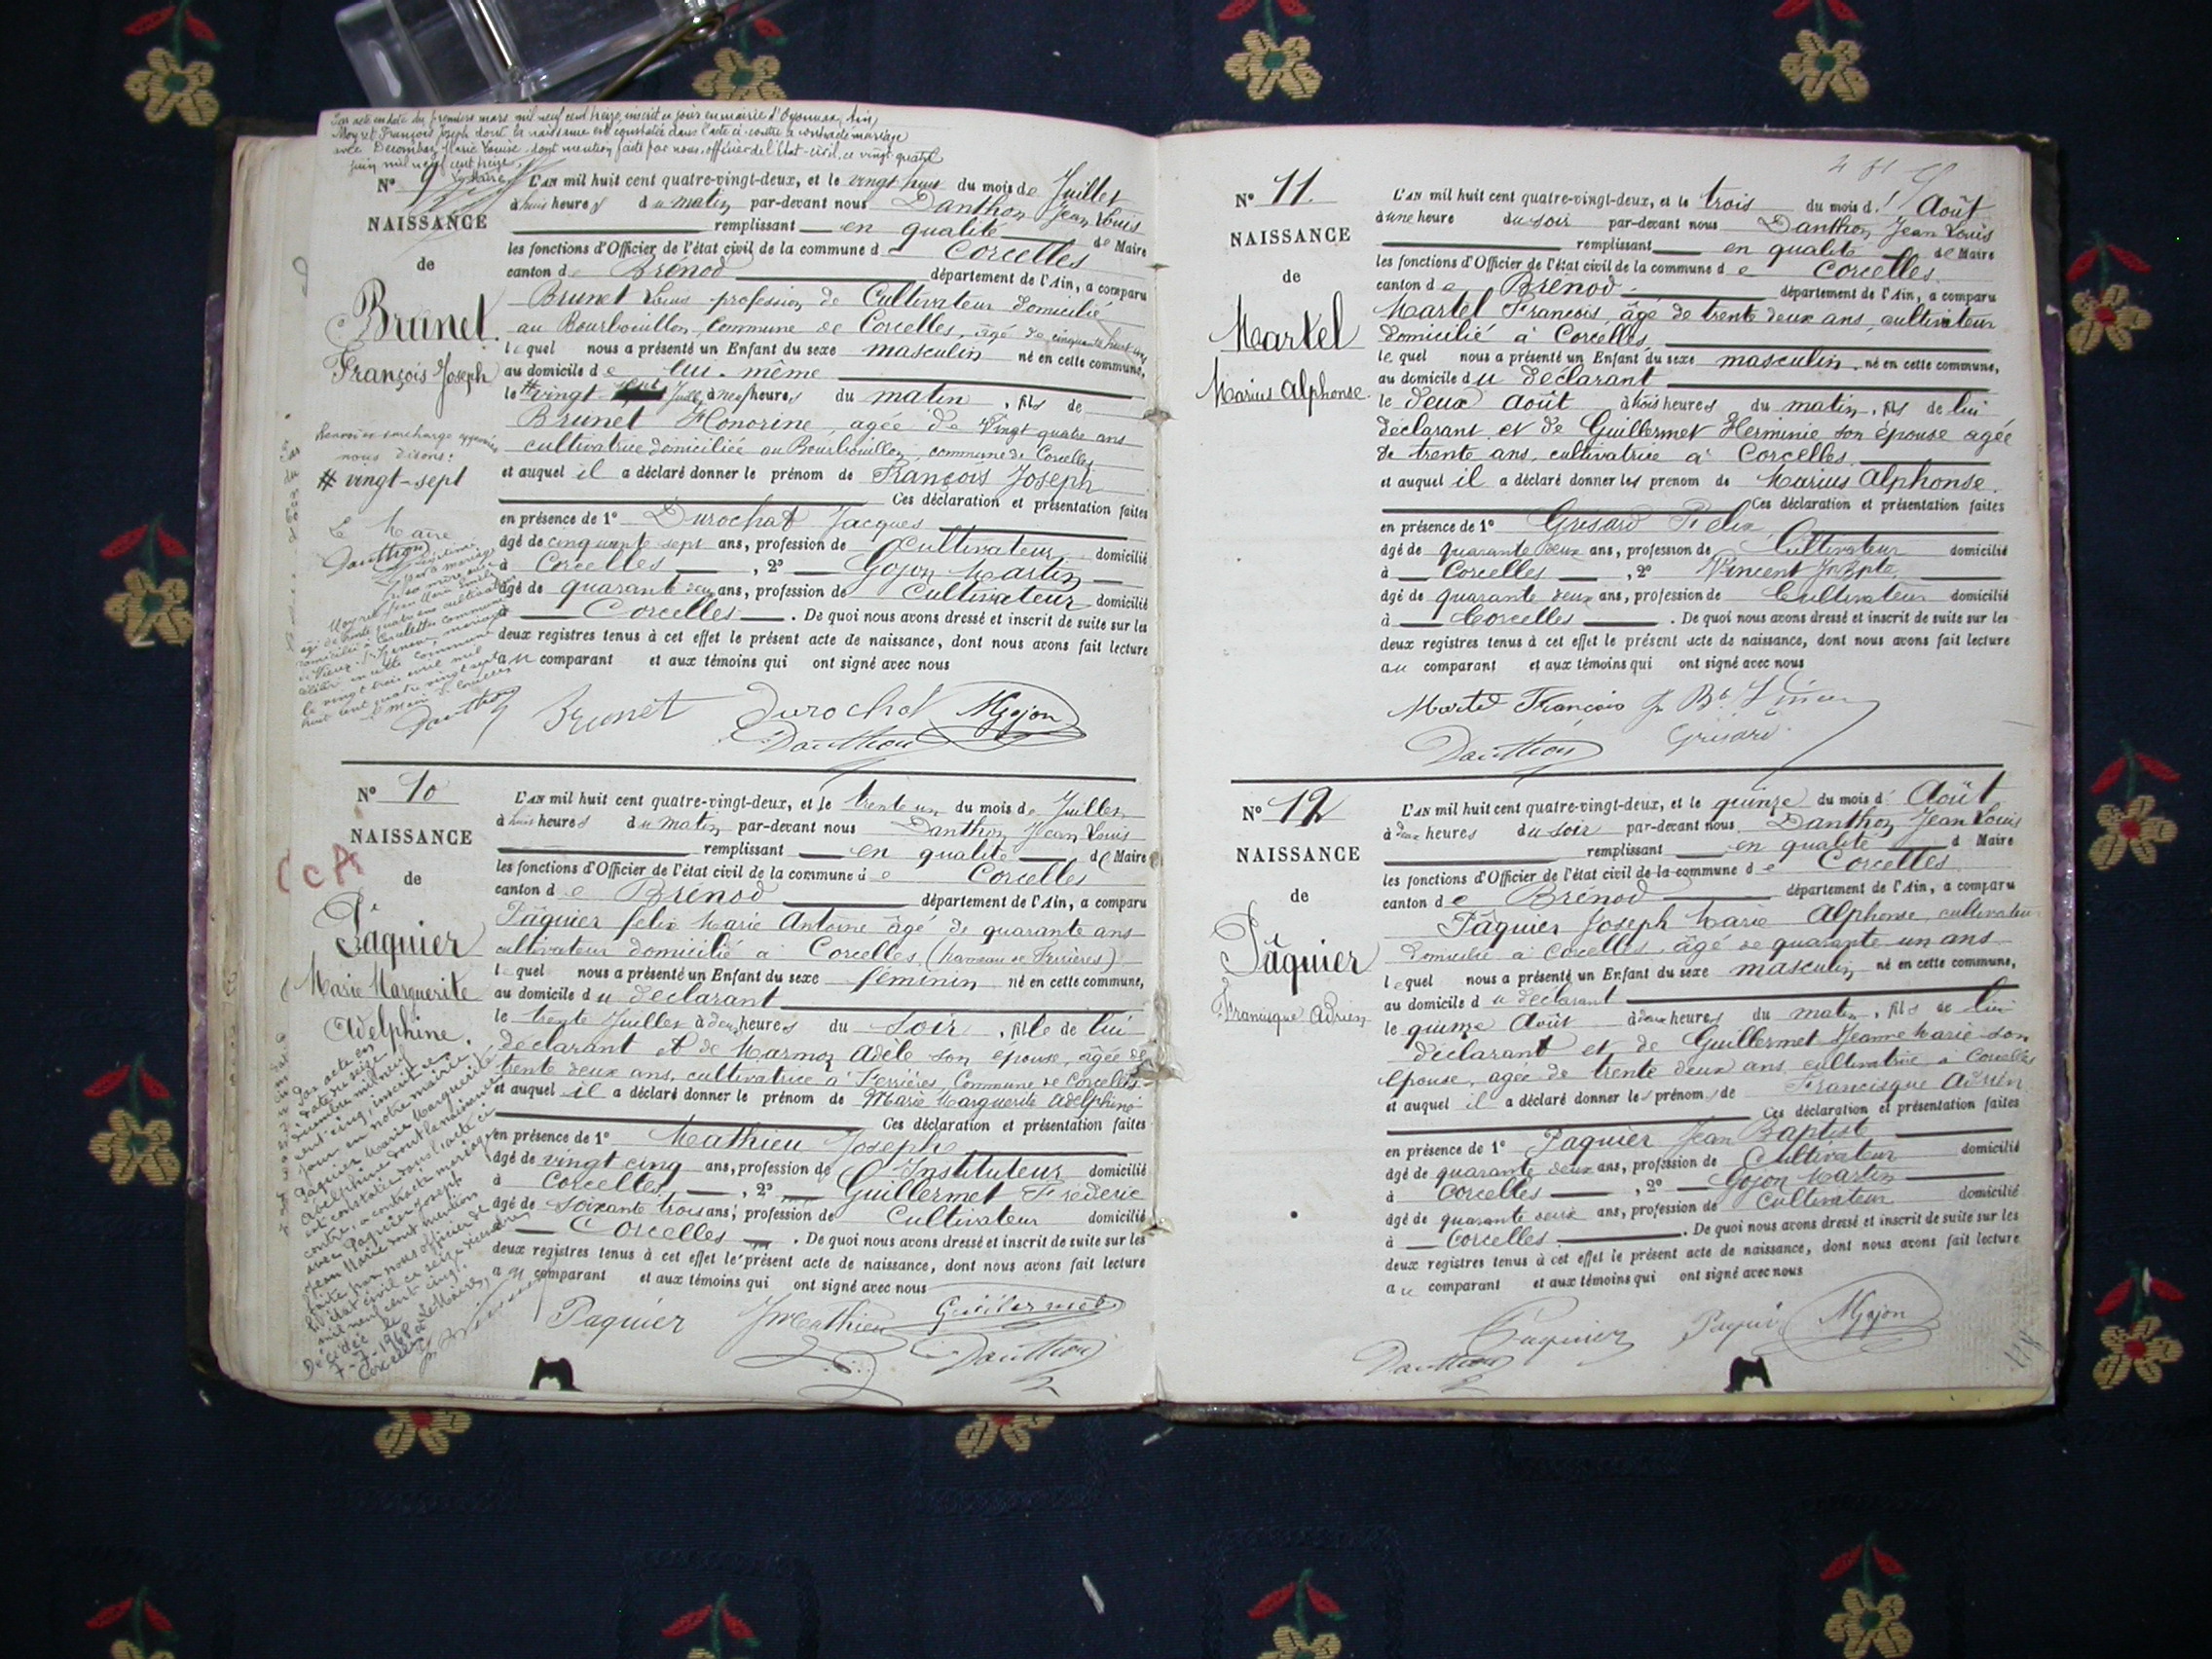 Par acte en date du premiere mars mil neuf cent treize, inscrit ce jour en mairie d'Oyonnax, Ain,
Moyret François Joseph dont la naissance est constatée dans l'acte ci-contre a contracté mariage
avec Marie Louise dont mention faite par nous, officier de l'état-civil, ce vingt-quatre
juin mil neuf cent treize.
Le Maire
N° 9
NAISSANCE
de
Brunet
François Joseph
Renvoi en surcharge approuvés
nous disons:
# vingt-sept
Le Maire
Danthon
L'AN mil huit cent quatre-vingt-deux, et le vingt huit du mois de Juillet
à huit heures du matin par-devant nous Danthon Jean Louis
remplissant en qualité de Maire
les fonctions d'Officier de l'état civil de la commune d Corcelles
canton de Brénod département de l'Ain, a comparu
Brunet Louis profession de Cultivateur domicilié
au Bourbouillon, Commune de Corcelles, âgé de cinquante huit ans
lequel nous a présenté un Enfant du sexe masculin né en cette commune,
au domicile de lui-même
le # vingt Juill à neuf heures du matin, fils de
Brunet Honorine, agée de Vingt quatre ans
cultivatrice domiciliée au Bourbouillon, commune de Corcelles
et auquel il a déclaré donner le prénom de François Joseph
Ces déclaration et présentation faites
en présence de 1° Durochat Jacques
âgé de cinquante sept ans, profession de Cultivateur domicilié
à Corcelles, 2° Gojon Martin
âgé de quarante deux ans, profession de Cultivateur domicilié
à Corcelles. De quoi nous avons dressé et inscrit de suite sur les
deux registres tenus à cet effet le présent acte de naissance, dont nous avons fait lecture
au comparant et aux témoins qui ont signé avec nous
Danthon Brunet Durochat MGojon
Danthon
Moyret
agé de trente quatre ans cultivateur
domicilié à
célébré en cette commune
le vingt trois mil
huit cent quatre vingt sept
N° 10
NAISSANCE
de
Pâquier
Marie Marguerite
Adelphine.
L'AN mil huit cent quatre-vingt-deux, et le trente un du mois de Juillet
à huit heures du matin par-devant nous Danthon Jean Louis
remplissant en qualité de Maire
les fonctions d'Officier de l'état civil de la commune de Corcelles
canton de Brénod département de l'Ain, a comparu
Pâquier felix Marie Antoine âgé de quarante ans
cultivateur domicilié à Corcelles, (hameau de Ferrières)
lequel nous a présenté un Enfant du sexe féminin né en cette commune,
au domicile du déclarant
le trente Juillet à deux heures du soir, fille de lui
déclarant et de Marmoz Adèle son épouse, âgée de
trente deux ans, cultivatrice à Ferrières, Commune de Corcelles
et auquel il a déclaré donner le prénom de Marie Marguerite Adelphine
Ces déclaration et présentation faites
en présence de 1° Mathieu Joseph
âgé de vingt cinq ans, profession de Instituteur domicilié
à Corcelles, 2° Guillermet Frédéric
âgé de soixante trois ans, profession de Cultivateur domicilié
Corcelles. De quoi nous avons dressé et inscrit de suite sur les
deux registres tenus à cet effet le présent acte de naissance, dont nous avons fait lecture
au comparant et aux témoins qui ont signé avec nous
Paquier Mathieu Guillermet
Danthon
Par acte en
date du seize
décembre mil neuf
cent cinq, inscrit ce
jour en notre mairie,
Paquier Marie Marguerite
Adelphine dont la naissance
est constatée dans l'acte ci
contre, a contracté mariage
avec Paquier Joseph
Jean Marie dont mention
faite par nous officier de
l'état civil ce seize décembre
mil neuf cent cinq.
Le Maire
Décédée le
7-7-1968 à
Corcelles
N° 11.
NAISSANCE
de
Martel
Marius Alphonse.
L'AN mil huit cent quatre-vingt-deux, et le trois du mois d' Août
à une heure du soir par-devant nous Danthon Jean Louis
remplissant en qualité de Maire
les fonctions d'Officier de l'état civil de la commune de Corcelles
canton de Brénod département de l'Ain, a comparu
Martel François âgé de trente deux ans, cultivateur
domicilié à Corcelles
lequel nous a présenté un Enfant du sexe masculin, né en cette commune,
au domicile du déclarant
le deux Août à trois heures du matin, fils de lui
déclarant et de Guillermet Herminie son épouse agée
de trente ans, cultivatrice à Corcelles
et auquel il a déclaré donner les prenom de Marius Alphonse.
Ces déclaration et présentation faites
en présence de 1° Grisard Félix,
âgé de quarante deux ans, profession de Cultivateur domicilié
à Corcelles, 2° Vincent Jn Bpte,
âgé de quarante deux ans, profession de Cultivateur domicilié
à Corcelles. De quoi nous avons dressé et inscrit de suite sur les
deux registres tenus à cet effet le présent acte de naissance, dont nous avons fait lecture
au comparant et aux témoins qui ont signé avec nous
Martel François
Danthon Grisard
N° 12
NAISSANCE
de
Pâquier
Francisque Adrien
L'AN mil huit cent quatre-vingt-deux, et le quinze du mois d' Août
à deux heures du soir par-devant nous Danthon Jean Louis
remplissant en qualité d Maire
les fonctions d'Officier de l'état civil de la commune de Corcelles
canton de Brénod département de l'Ain, a comparu
Pâquier Joseph Marie Alphonse, cultivateur
domicilié à Corcelles, âgé de quarante un ans
lequel nous a présenté un Enfant du sexe masculin né en cette commune,
au domicile du déclarant
le quinze Août à deux heures du matin, fils de lui
déclarant et de Guillermet Jeanne Marie son
épouse, agée de trente deux ans, cultivatrice à Corcelles
et auquel il a déclaré donner les prénoms de Francisque Adrien
Ces déclaration et présentation faites
en présence de 1° Paquier Jean Baptiste
âgé de quarante deux ans, profession de Cultivateur domicilié
à Corcelles, 2° Gojon Martin
âgé de quarante deux ans, profession de Cultivateur domicilié
à Corcelles. De quoi nous avons dressé et inscrit de suite sur les
deux registres tenus à cet effet le présent acte de naissance, dont nous avons fait lecture
au comparant et aux témoins qui ont signé avec nous
Paquier MGojon
Danthon